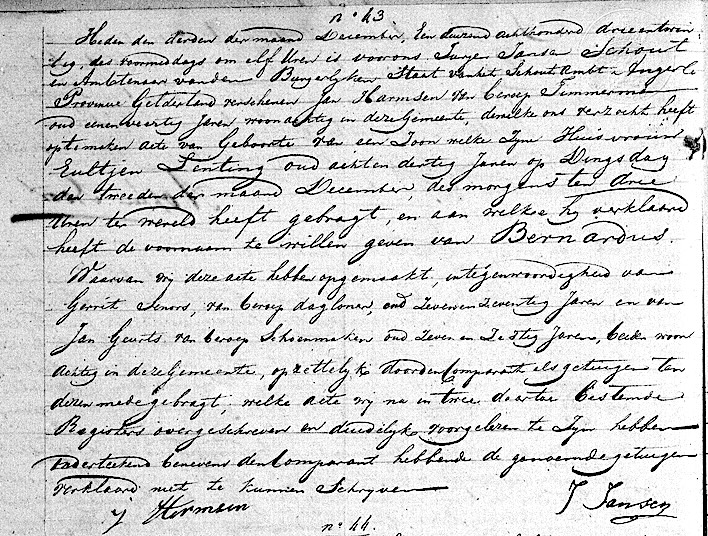 n° 43
Heden den derden der maand December, Een duizend achthonderd drie en twin-
tig, des voormiddags om elf Uren is voor ons Jurjen Jansen Schout
en Ambtenaar van den Burgerlyken Staat van het Schout Ambt
Provincie Gelderland verschenen Jan Harmsen van beroep Timmerman
oud eenen veertig Jaren woonachtig in deze Gemeente, dewelke ons verzocht heeft
op te maken acte van Geboorte van een Zoon welke Zyn Huisvrouw
Eultjen Lenting oud acht en dertig Jaren op Dingsdag
den tweeden der maand December, des morgens ten drie
Uren ter wereld heeft gebragt, en aan welke hy verklaard
heeft de voornaam te willen geven van Bernardus.
Waarvan wy deze acte hebben opgemaakt, in tegenwoordigheid van
Gerrit van beroep daglooner, oud Zeven en Zeventig Jaren en van
Jan Geurts van beroep Schoenmaker oud Zeven en Zestig Jaren, beiden woon
achtig in deze Gemeente, opzettelyk door den Comparant als getuigen ten
dezen medegebragt, welke acte wy na in twee daartoe bestemde
Registers overgeschreven en duidelyk voorgelezen te Zyn hebben
onderteekend benevens den Comparant hebbende de genoemde getuigen
verklaard niet te kunnen Schryven
J Hermsen J Jansen
n° 44.